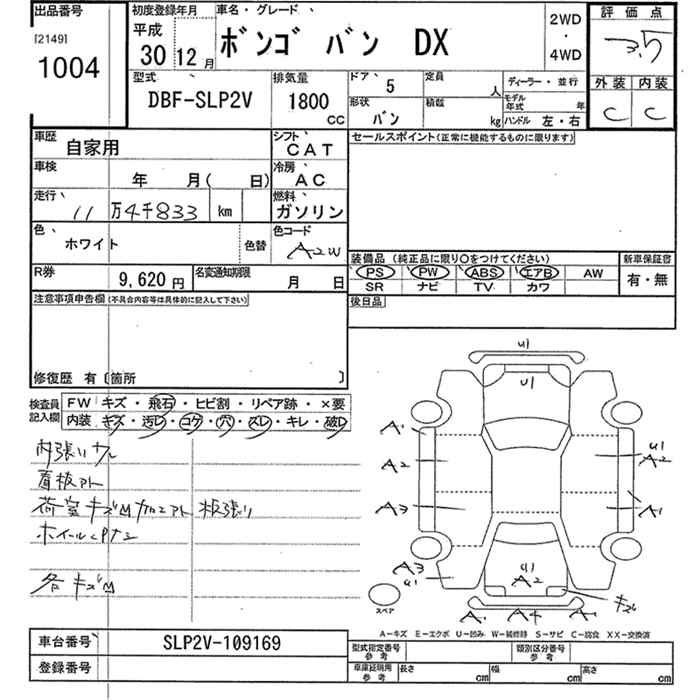 出品番号
[2149]
1004
初度登録年月
平成
30 12 月
車名・グレード
ボンゴ バン DX
2WD
・
4WD
評価点
3.5
外装 内装
C C
型式
DBF-SLP2V
排気量
1800
cc
ドア
5
定員
人
形状
バン
積載
kg
ディーラー・並行
モデル年式 年
ハンドル 左・右
車歴
自家用
シフト
CAT
車検
年 月( 日)
冷房
AC
走行
11 万4千833 km
燃料
ガソリン
色
ホワイト
色替
色コード
A2W
R券
9,620 円
名変通知期限
月 日
セールスポイント(正常に機能するものに限ります)
装備品 (純正品に限り○をつけてください)
PS PW ABS エアB AW
SR ナビ TV カワ
新車保証書
有・無
後日品
注意事項申告欄(不具合内容等は具体的に記入して下さい)
修復歴 有〔箇所 〕
検査員
記入欄
FW キズ・飛石・ヒビ割・リペア跡・×要
内装 キズ・汚レ・コゲ・穴・スレ・キレ・破レ
内張り
看板アト
荷室キズM加工アト 板張り
ホイール
各キズM
U1
U1
A1
A2
A3
U1
A2
A1
A3
U1
U1
A2
キズ
A1 A4 A1
スペア
A−キズ E−エクボ U−凹み W−補修跡 S−サビ C−腐食 XX−交換済
車台番号
SLP2V-109169
登録番号
型式指定番号
参考
類別区分番号
参考
車庫証明用
参考
長さ cm
幅 cm
高さ cm